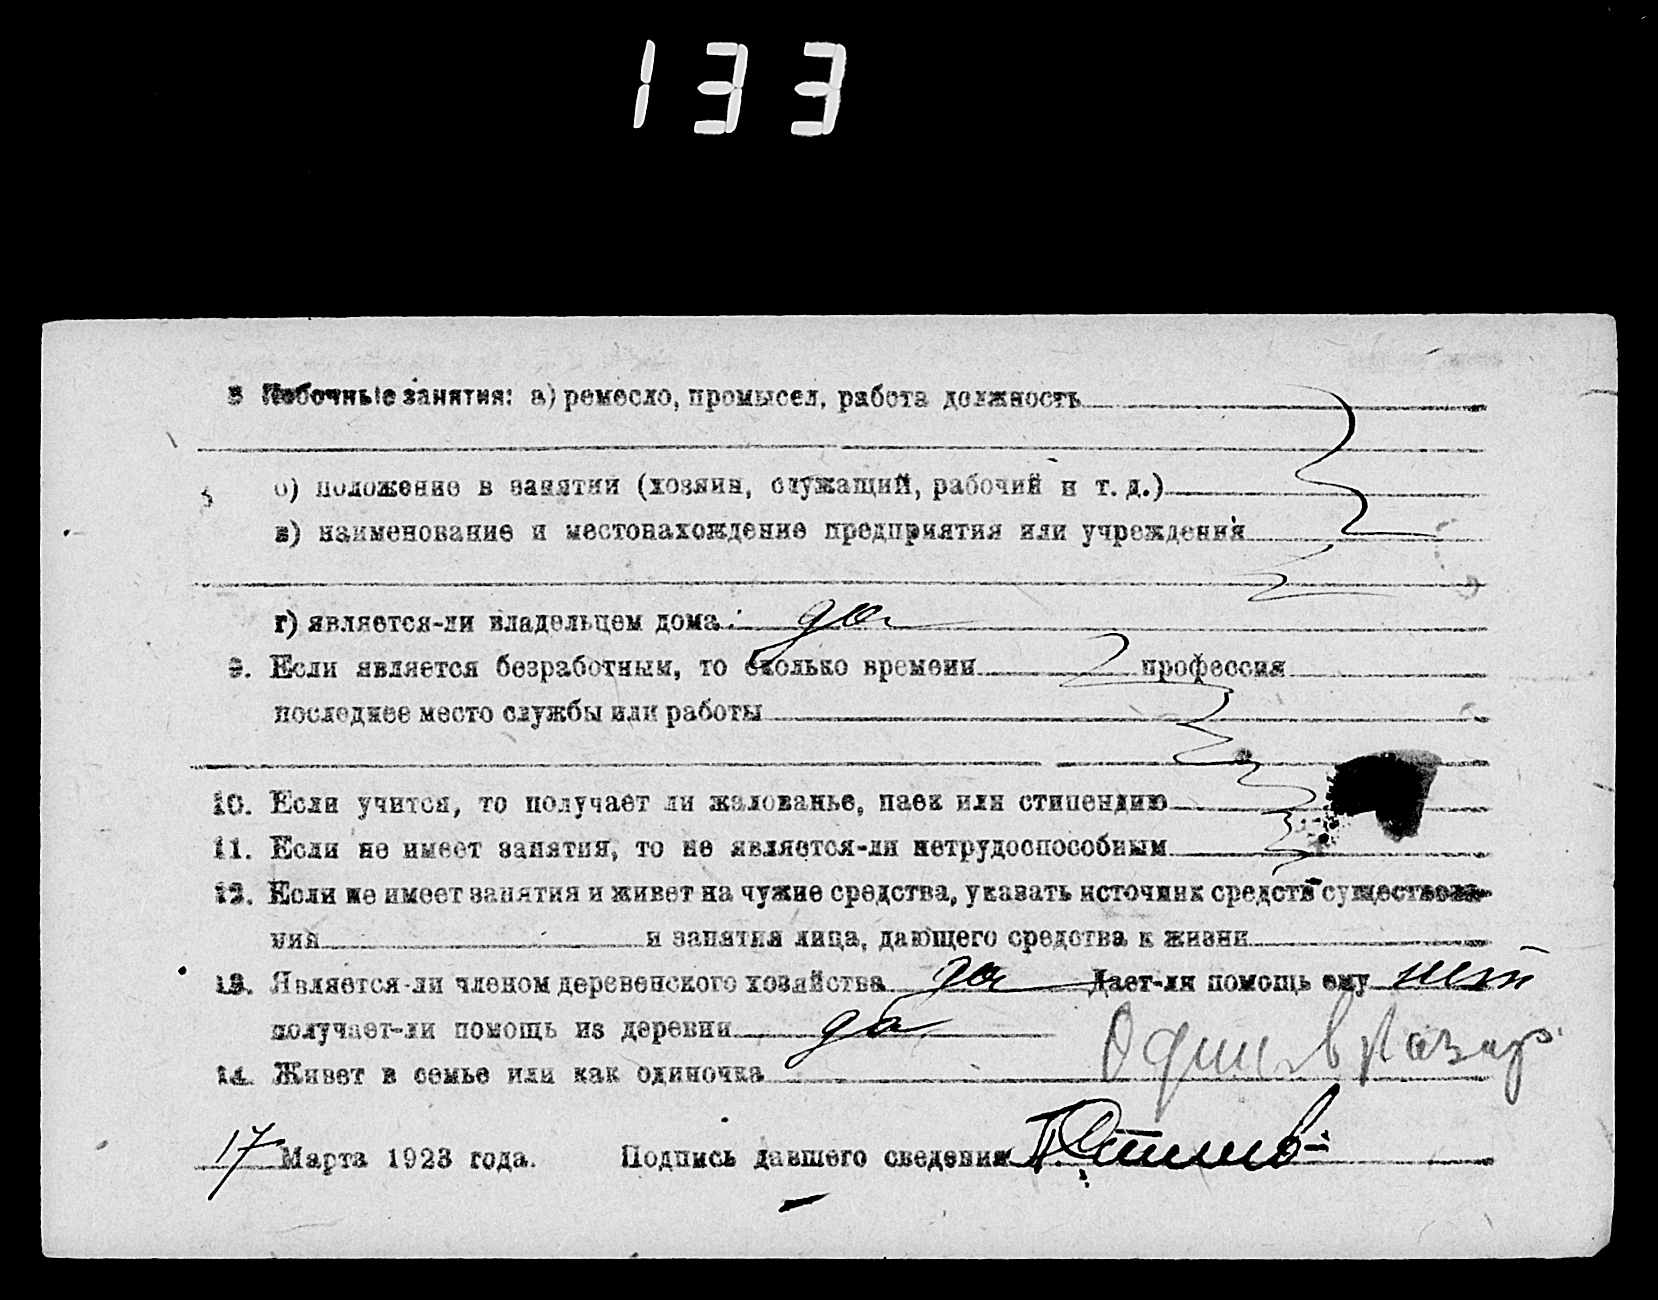 133
8 Побочные занятия: а) ремесло, промысел, работа должность
б) положение в занятии (хозяин, служащий, рабочий и т. д.)
в) наименование и местонахождение предприятия или учреждения
г) является-ли владельцем дома: да
9. Если является безработным, то сколько времени профессия
последнее место службы или работы
10. Если учится, то получает ли жалованье, паек или стипендию
11. Если не имеет занятия, то не является-ли нетрудоспособным
12. Если не имеет занятия и живет на чужие средства, указать источник средств существова-
ния и занятия лица, дающего средства к жизни
13. Является-ли членом деревенского хозяйства да Дает-ли помощь ему нет
получает-ли помощь из деревни да
14. Живет в семье или как одиночка Один в Казар
17 Марта 1923 года. Подпись давшего сведения